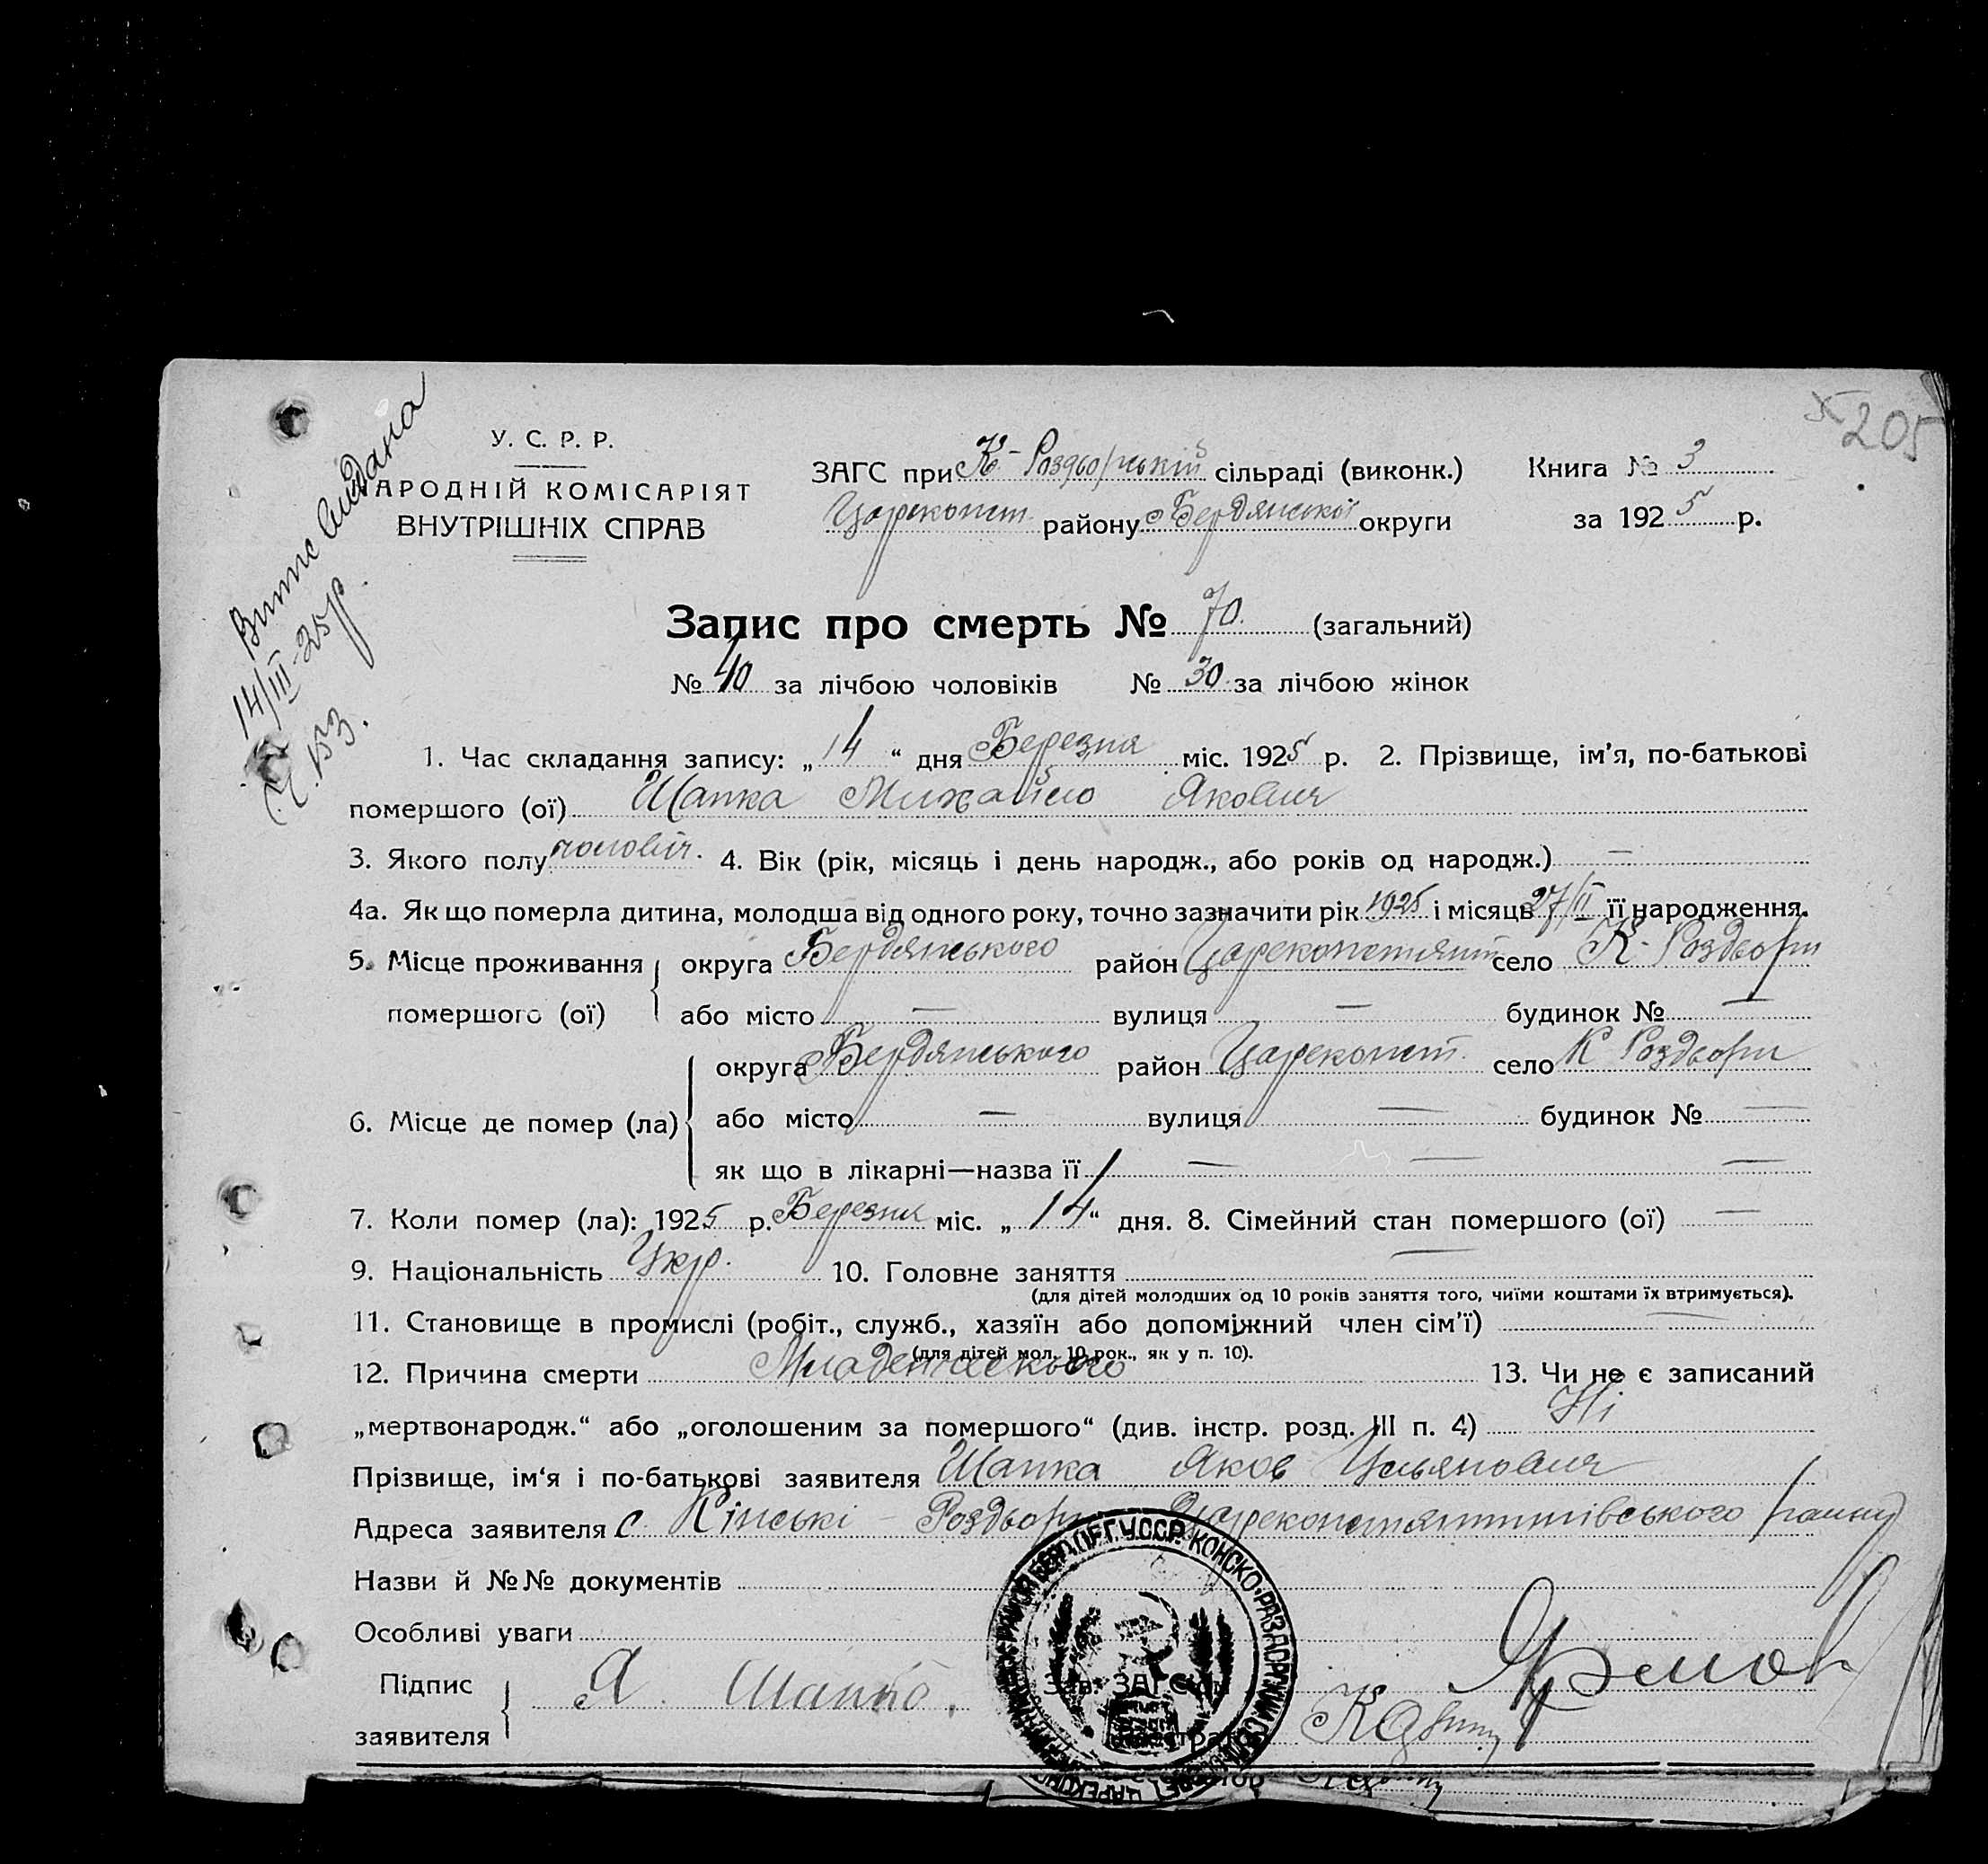 205
У. С. Р. Р.
НАРОДНІЙ КОМІСАРІЯТ
ВНУТРІШНІХ СПРАВ
Витяг видана
14/III-25 р.
Ч. 153.
ЗАГС при К-Роздорській сільраді (виконк.) Книга № 3
Царекопст. району Бердянської округи за 1925 р.
Запис про смерть № 70. (загальний)
№ 40 за лічбою чоловіків № 30. за лічбою жінок
1. Час складання запису: „14“ дня Березня міс. 1925 р. 2. Прізвище, ім'я, по-батькові
помершого (ої) Шапка Михайло Якович
3. Якого полу чоловіч. 4. Вік (рік, місяць і день народж., або років од народж.) —
4а. Як що померла дитина, молодша від одного року, точно зазначити рік 1925 і місяць 27/II її народження.
5. Місце проживання округа Бердянського район село К-Роздори
помершого (ої) або місто — вулиця — будинок № —
округа Бердянського район Царекопст. село К Роздори
6. Місце де помер (ла) або місто — вулиця — будинок № —
як що в лікарні—назва її — — —
7. Коли помер (ла): 1925 р. Березня міс. „14“ дня. 8. Сімейний стан помершого (ої) —
9. Національність Укр. 10. Головне заняття —
(для дітей молодших од 10 років заняття того, чиїми коштами їх втримується).
11. Становище в промислі (робіт., служб., хазяїн або допоміжний член сім'ї) —
(для дітей мол. 10 рок., як у п. 10).
12. Причина смерти Младенческого 13. Чи не є записаний
„мертвонародж.“ або „оголошеним за помершого“ (див. інстр. розд. III п. 4) Ні
Прізвище, ім'я і по-батькові заявителя Шапка Яков Ульянович
Адреса заявителя с. Кінські - Роздори Цареконстянтинівського району
Назви й №№ документів
Особливі уваги
Підпис Я. Шапко. Зав. ЗАГСом
заявителя Реєстратор
КОНСКО-РАЗДОРСКИЙ СЕЛЬСОВЕТ У.С.С.Р.